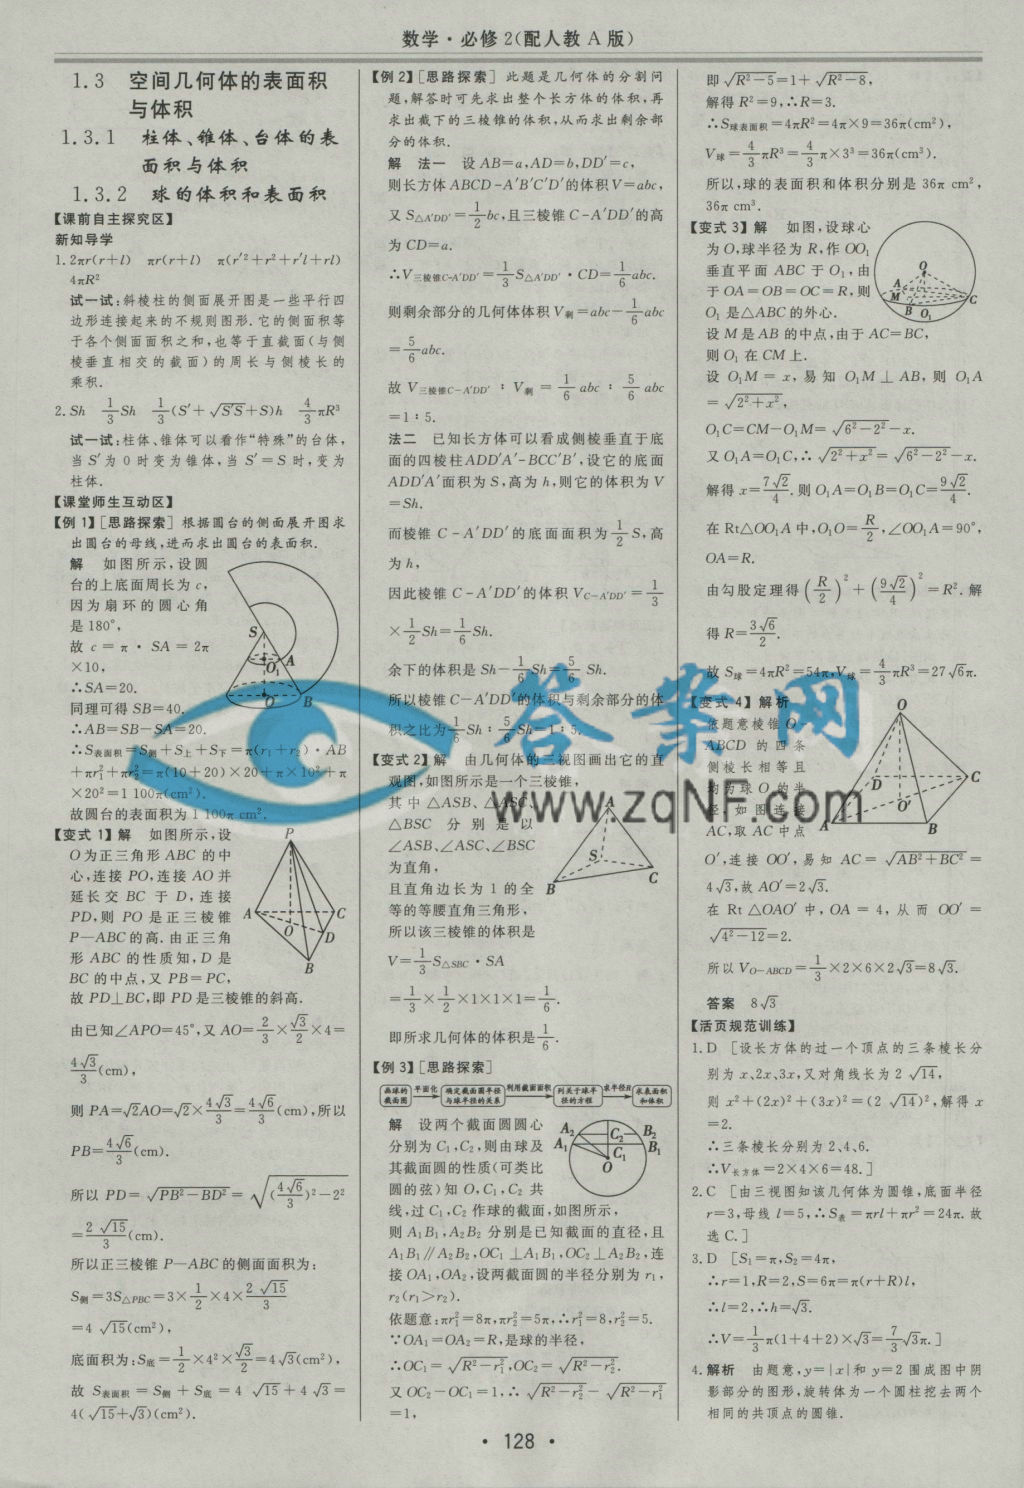 数学·必修2(配人教A版)
1.3 空间几何体的表面积
与体积
1.3.1 柱体、锥体、台体的表
面积与体积
1.3.2 球的体积和表面积
【课前自主探究区】
新知导学
1.2πr(r+l) πr(r+l) π(r′²+r²+r′l+rl)
4πR²
试一试:斜棱柱的侧面展开图是一些平行四
边形连接起来的不规则图形.它的侧面积等
于各个侧面面积之和,也等于直截面(与侧
棱垂直相交的截面)的周长与侧棱长的
乘积.
2.Sh 1/3Sh 1/3(S′+√(S′S)+S)h 4/3πR³
试一试:柱体、锥体可以看作“特殊”的台体,
当S′为0时变为锥体,当S′=S时,变为
柱体.
【课堂师生互动区】
【例1】[思路探索] 根据圆台的侧面展开图求
出圆台的母线,进而求出圆台的表面积.
解 如图所示,设圆
台的上底面周长为c,
因为扇环的圆心角
是180°,
故c=π·SA=2π
×10,
∴SA=20.
同理可得SB=40.
∴AB=SB-SA=20.
∴S表面积=S侧+S上+S下=π(r₁+r₂)·AB
+πr₁²+πr₂²=π(10+20)×20+π×10²+π
×20²=1 100π(cm²).
故圆台的表面积为1 100π cm².
S
O₁
A
O
B
【变式1】解 如图所示,设
O为正三角形ABC的中
心,连接PO,连接AO并
延长交BC于D,连接
PD,则PO是正三棱锥
P—ABC的高.由正三角
形ABC的性质知,D是
BC的中点,又PB=PC,
故PD⊥BC,即PD是三棱锥的斜高.
P
A
C
O
D
B
由已知∠APO=45°,又AO=2/3×√3/2×4=
4√3/3(cm),
则PA=√2AO=√2×4√3/3=4√6/3(cm),所以
PB=4√6/3(cm).
所以PD=√(PB²-BD²)=√((4√6/3)²-2²)
=2√15/3(cm).
所以正三棱锥P—ABC的侧面面积为:
S侧=3S△PBC=3×1/2×4×2√15/3
=4√15(cm²),
底面积为:S底=1/2×4²×√3/2=4√3(cm²),
故S表面积=S侧+S底=4√15+4√3=
4(√15+√3)(cm²).
【例2】[思路探索] 此题是几何体的分割问
题,解答时可先求出整个长方体的体积,再
求出截下的三棱锥的体积,从而求出剩余部
分的体积.
解 法一 设AB=a,AD=b,DD′=c,
则长方体ABCD-A′B′C′D′的体积V=abc,
又S△A′DD′=1/2bc,且三棱锥C-A′DD′的高
为CD=a.
∴V三棱锥C-A′DD′=1/3S△A′DD′·CD=1/6abc.
则剩余部分的几何体体积V剩=abc-1/6abc
=5/6abc.
故V三棱锥C-A′DD′:V剩=1/6abc:5/6abc
=1:5.
法二 已知长方体可以看成侧棱垂直于底
面的四棱柱ADD′A′-BCC′B′,设它的底面
ADD′A′面积为S,高为h,则它的体积为V
=Sh.
而棱锥C-A′DD′的底面面积为1/2S,高
为h,
因此棱锥C-A′DD′的体积VC-A′DD′=1/3
×1/2Sh=1/6Sh.
余下的体积是Sh-1/6Sh=5/6Sh.
所以棱锥C-A′DD′的体积与剩余部分的体
积之比为1/6Sh:5/6Sh=1:5.
【变式2】解 由几何体的三视图画出它的直
观图,如图所示是一个三棱锥,
其中△ASB、△ASC、
△BSC分别是以
∠ASB、∠ASC、∠BSC
为直角,
且直角边长为1的全
等的等腰直角三角形,
所以该三棱锥的体积是
A
S
B
C
V=1/3S△SBC·SA
=1/3×1/2×1×1×1=1/6.
即所求几何体的体积是1/6.
【例3】[思路探索]
画球的截面图 平面化 确定截面圆半径与球半径的关系 利用截面面积 列关于球半径的方程 求半径R 求表面积和体积
解 设两个截面圆圆心
分别为C₁,C₂,则由球及
其截面圆的性质(可类比
圆的弦)知O,C₁,C₂共
线,过C₁,C₂作球的截面,如图所示,
A₂
C₂
B₂
A₁
C₁
B₁
O
则A₁B₁,A₂B₂分别是已知截面的直径,且
A₁B₁∥A₂B₂,OC₁⊥A₁B₁,OC₂⊥A₂B₂,连
接OA₁,OA₂,设两截面圆的半径分别为r₁,
r₂(r₁>r₂).
依题意:πr₁²=8π,πr₂²=5π,∴r₁²=8,r₂²=5.
∵OA₁=OA₂=R,是球的半径,
∴OC₁=√(R²-r₁²),OC₂=√(R²-r₂²).
又OC₂-OC₁=1,∴√(R²-r₂²)-√(R²-r₁²)
=1,
即√(R²-5)=1+√(R²-8),
解得R²=9,∴R=3.
∴S球表面积=4πR²=4π×9=36π(cm²),
V球=4/3πR³=4/3π×3³=36π(cm³).
所以,球的表面积和体积分别是36π cm²,
36π cm³.
【变式3】解 如图,设球心
为O,球半径为R,作OO₁
垂直平面ABC于O₁,由
于OA=OB=OC=R,则
O₁是△ABC的外心.
O
A
M
C
B
O₁
设M是AB的中点,由于AC=BC,
则O₁在CM上.
设O₁M=x,易知O₁M⊥AB,则O₁A
=√(2²+x²),
O₁C=CM-O₁M=√(6²-2²)-x.
又O₁A=O₁C,∴√(2²+x²)=√(6²-2²)-x.
解得x=7√2/4.则O₁A=O₁B=O₁C=9√2/4.
在Rt△OO₁A中,O₁O=R/2,∠OO₁A=90°,
OA=R.
由勾股定理得(R/2)²+(9√2/4)²=R².解
得R=3√6/2.
故S球=4πR²=54π,V球=4/3πR³=27√6π.
【变式4】解析
依题意棱锥O-
ABCD的四条
侧棱长相等且
均为球O的半
径,如图连接
AC,取AC中点
O
D
C
O′
A
B
O′,连接OO′,易知AC=√(AB²+BC²)=
4√3,故AO′=2√3.
在Rt△OAO′中,OA=4,从而OO′=
√(4²-12)=2.
所以VO-ABCD=1/3×2×6×2√3=8√3.
答案 8√3
【活页规范训练】
1.D [设长方体的过一个顶点的三条棱长分
别为x、2x、3x,又对角线长为2√14,
则x²+(2x)²+(3x)²=(2√14)²,解得x
=2.
∴三条棱长分别为2、4、6.
∴V长方体=2×4×6=48.]
2.C [由三视图知该几何体为圆锥,底面半径
r=3,母线l=5,∴S表=πrl+πr²=24π.故
选C.]
3.D [S₁=π,S₂=4π,
∴r=1,R=2,S=6π=π(r+R)l,
∴l=2,∴h=√3.
∴V=1/3π(1+4+2)×√3=7/3√3π.]
4.解析 由题意,y=|x|和y=2围成图中阴
影部分的图形,旋转体为一个圆柱挖去两个
相同的共顶点的圆锥.
答案网
www.zqNF.com
·128·